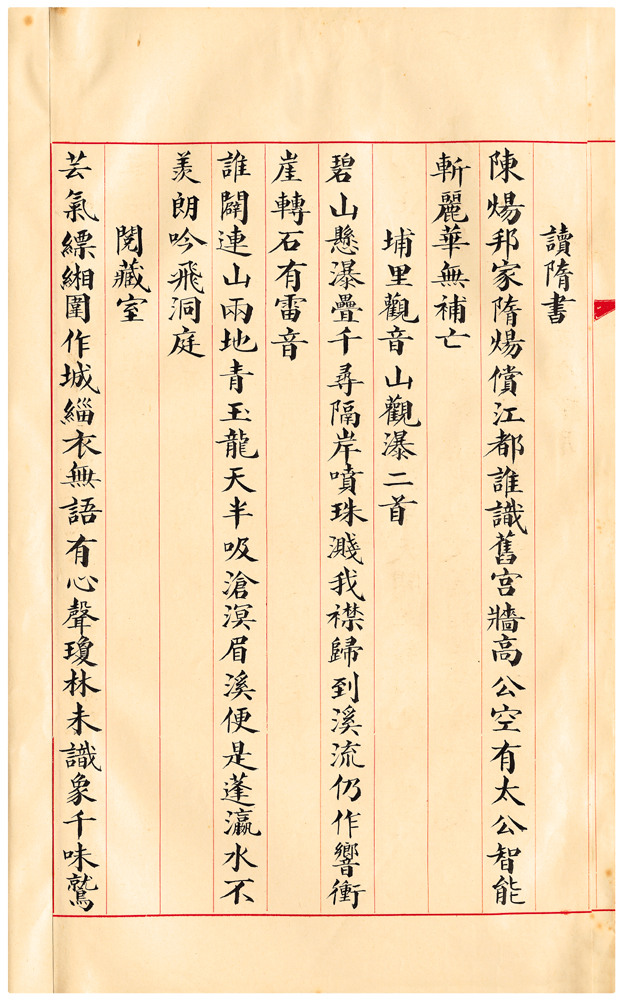 讀隋書
陳煬邦家隋煬償江都誰識舊宮牆高公空有太公智能
斬麗華無補亡
埔里觀音山觀瀑二首
碧山懸瀑疊千尋隔岸噴珠濺我襟歸到溪流仍作響衝
崖轉石有雷音
誰闢連山兩地青玉龍天半吸滄溟眉溪便是蓬瀛水不
羨朗吟飛洞庭
閱藏室
芸氣縹緗圍作城緇衣無語有心聲瓊林未識象千味鷲